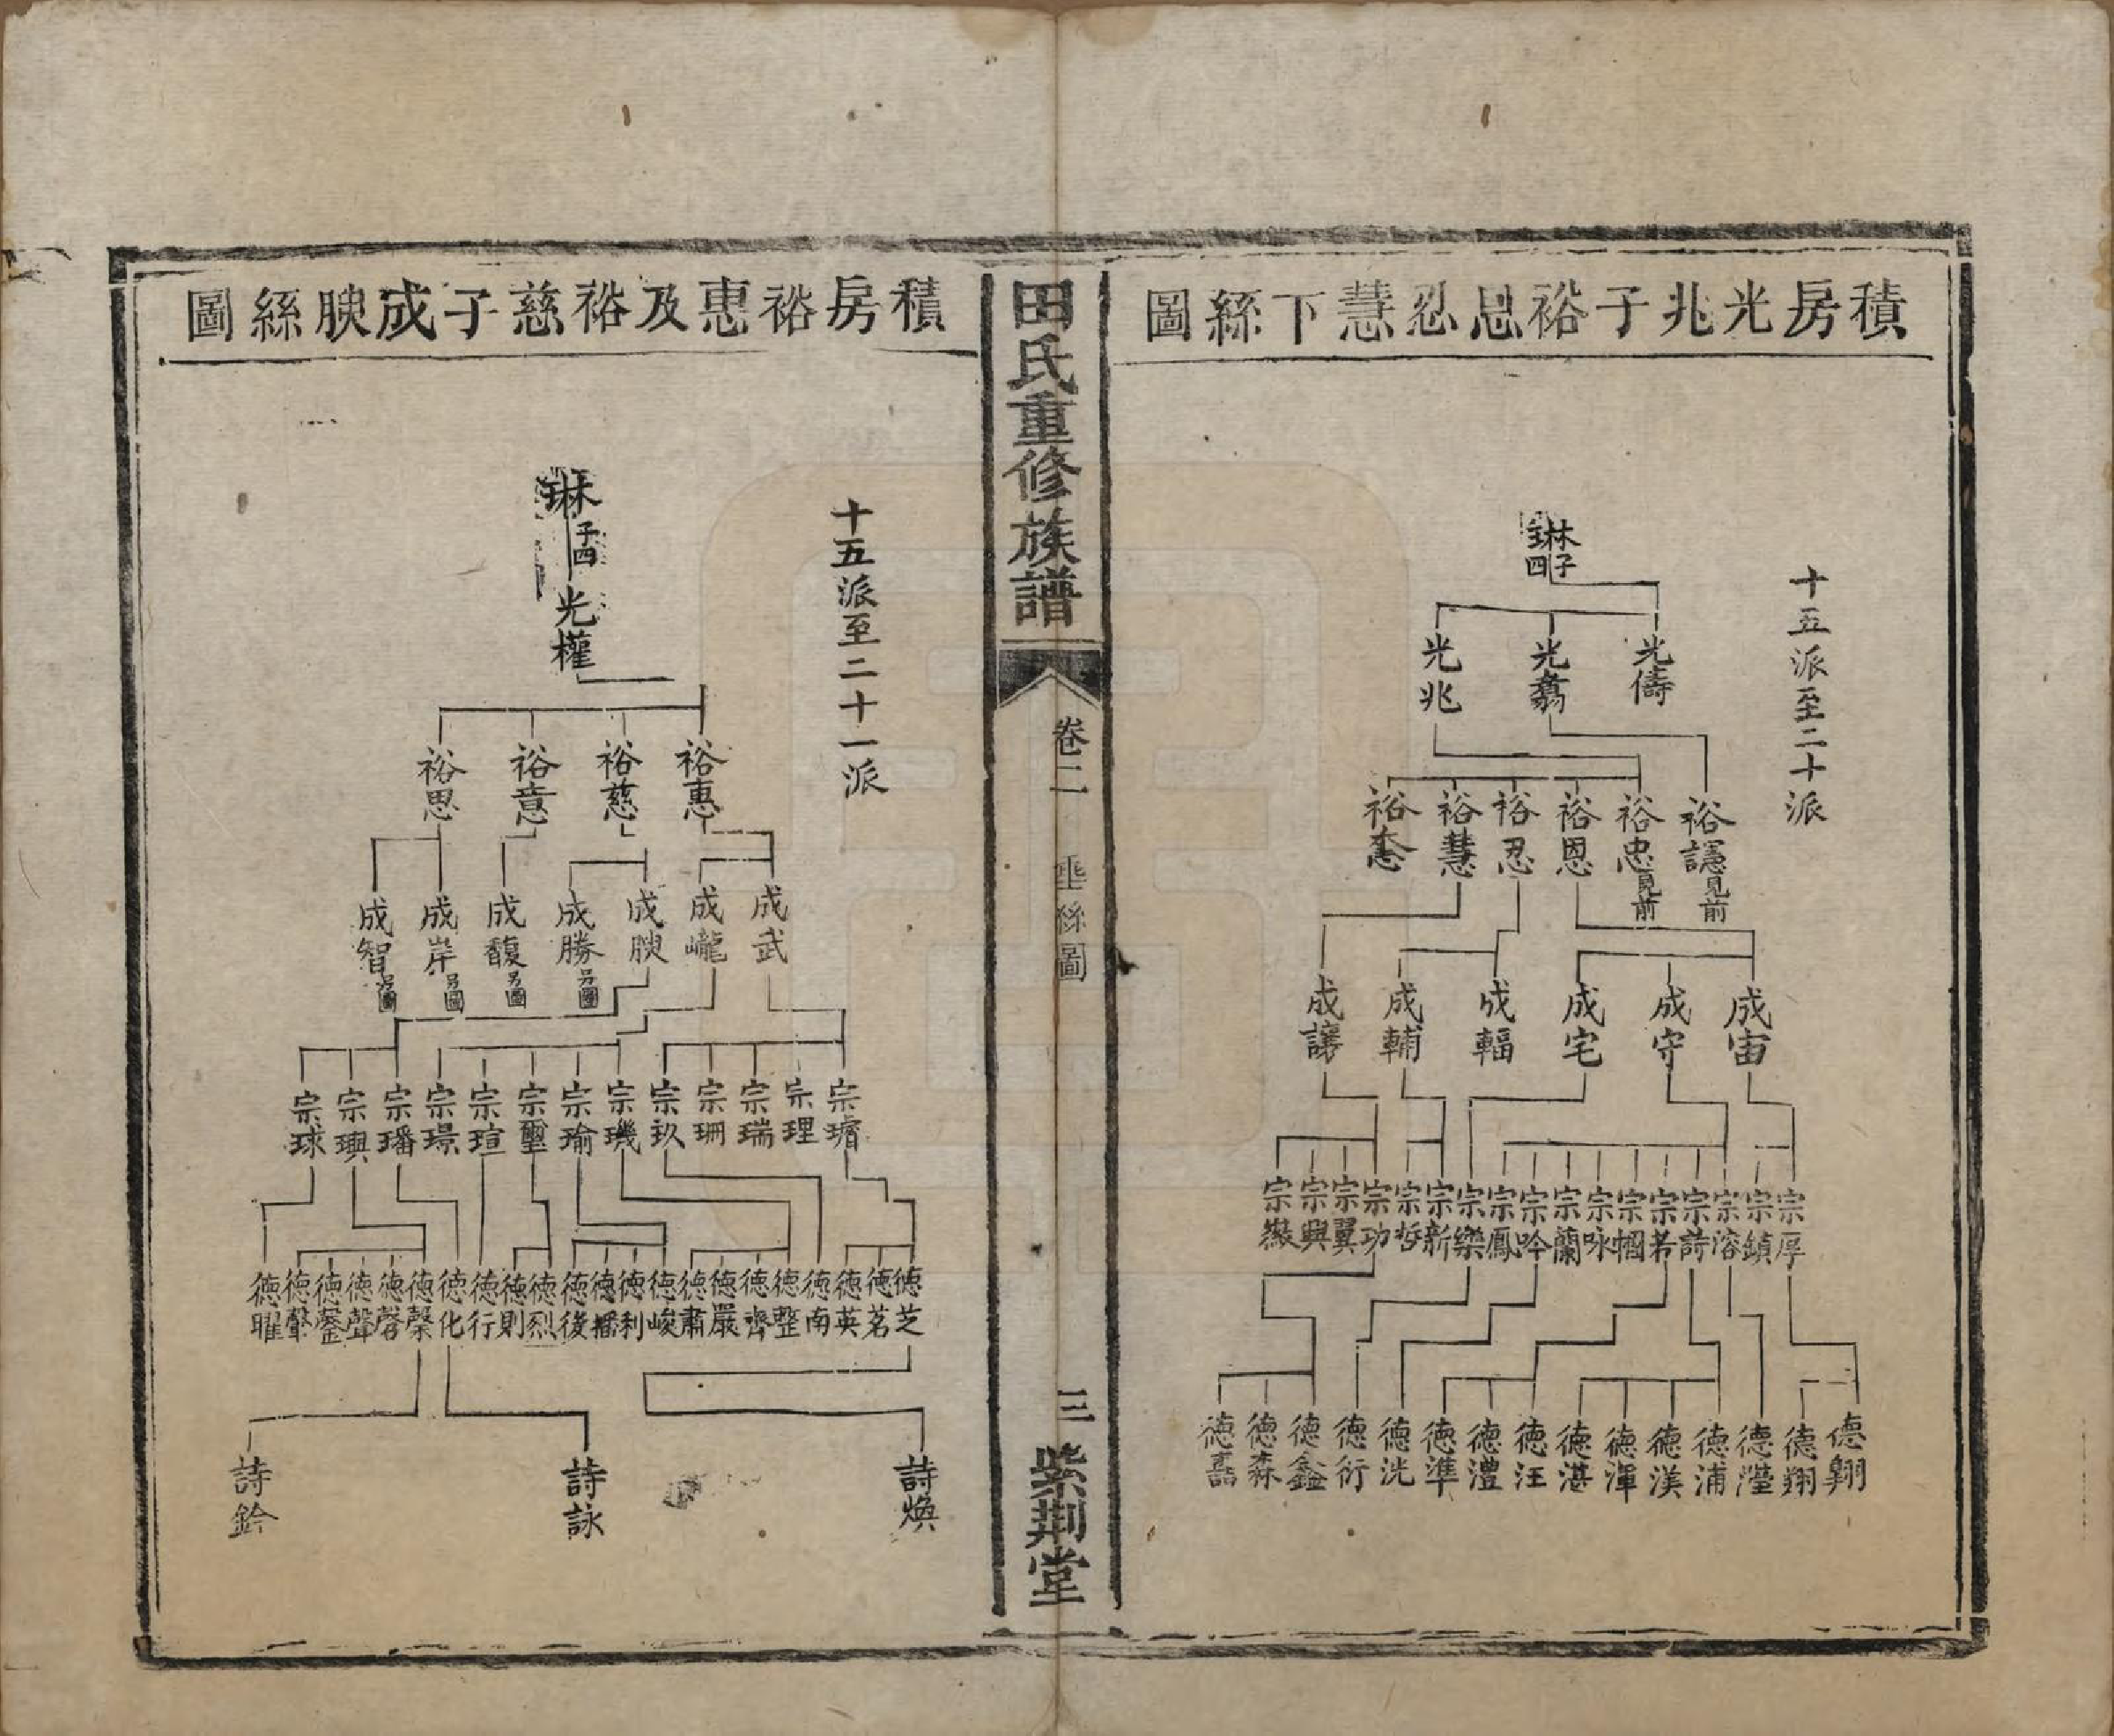 積房光兆子裕恩忍慧下絲圖
十五派至二十派
琳子四
光儔 光翥 光兆
裕譓見前 裕忠見前 裕恩 裕忍 裕慧 裕憃
成宙 成守 成宅 成輻 成輔 成讓
宗厚 宗鎮 宗溶 宗詩 宗若 宗樌 宗咏 宗蘭 宗吟 宗鳳 宗樂 宗新 宗哲 宗功 宗翼 宗興 宗
德翱 德翔 德 德浦 德漢 德渾 德湛 德汪 德澧 德準 德洸 德衍 德鑫 德森 德嚞
田氏重修族譜
卷二
垂絲圖
三
紫荆堂
積房裕惠及裕慈子成腴絲圖
十五派至二十一派
琳子四 光權
裕惠 裕慈 裕意 裕思
成武 成巄 成腴 成勝另圖 成馥另圖 成岸另圖 成智另圖
宗璿 宗理 宗瑞 宗珊 宗玖 宗璣 宗瑜 宗璽 宗瑄 宗璟 宗璠 宗璵 宗球
德芝 德茗 德英 德南 德整 德齊 德嚴 德肅 德峻 德利 德播 德後 德烈 德則 德行 德化 德馨 德 德聲 德 德 德曜
詩煥 詩詠 詩鈐